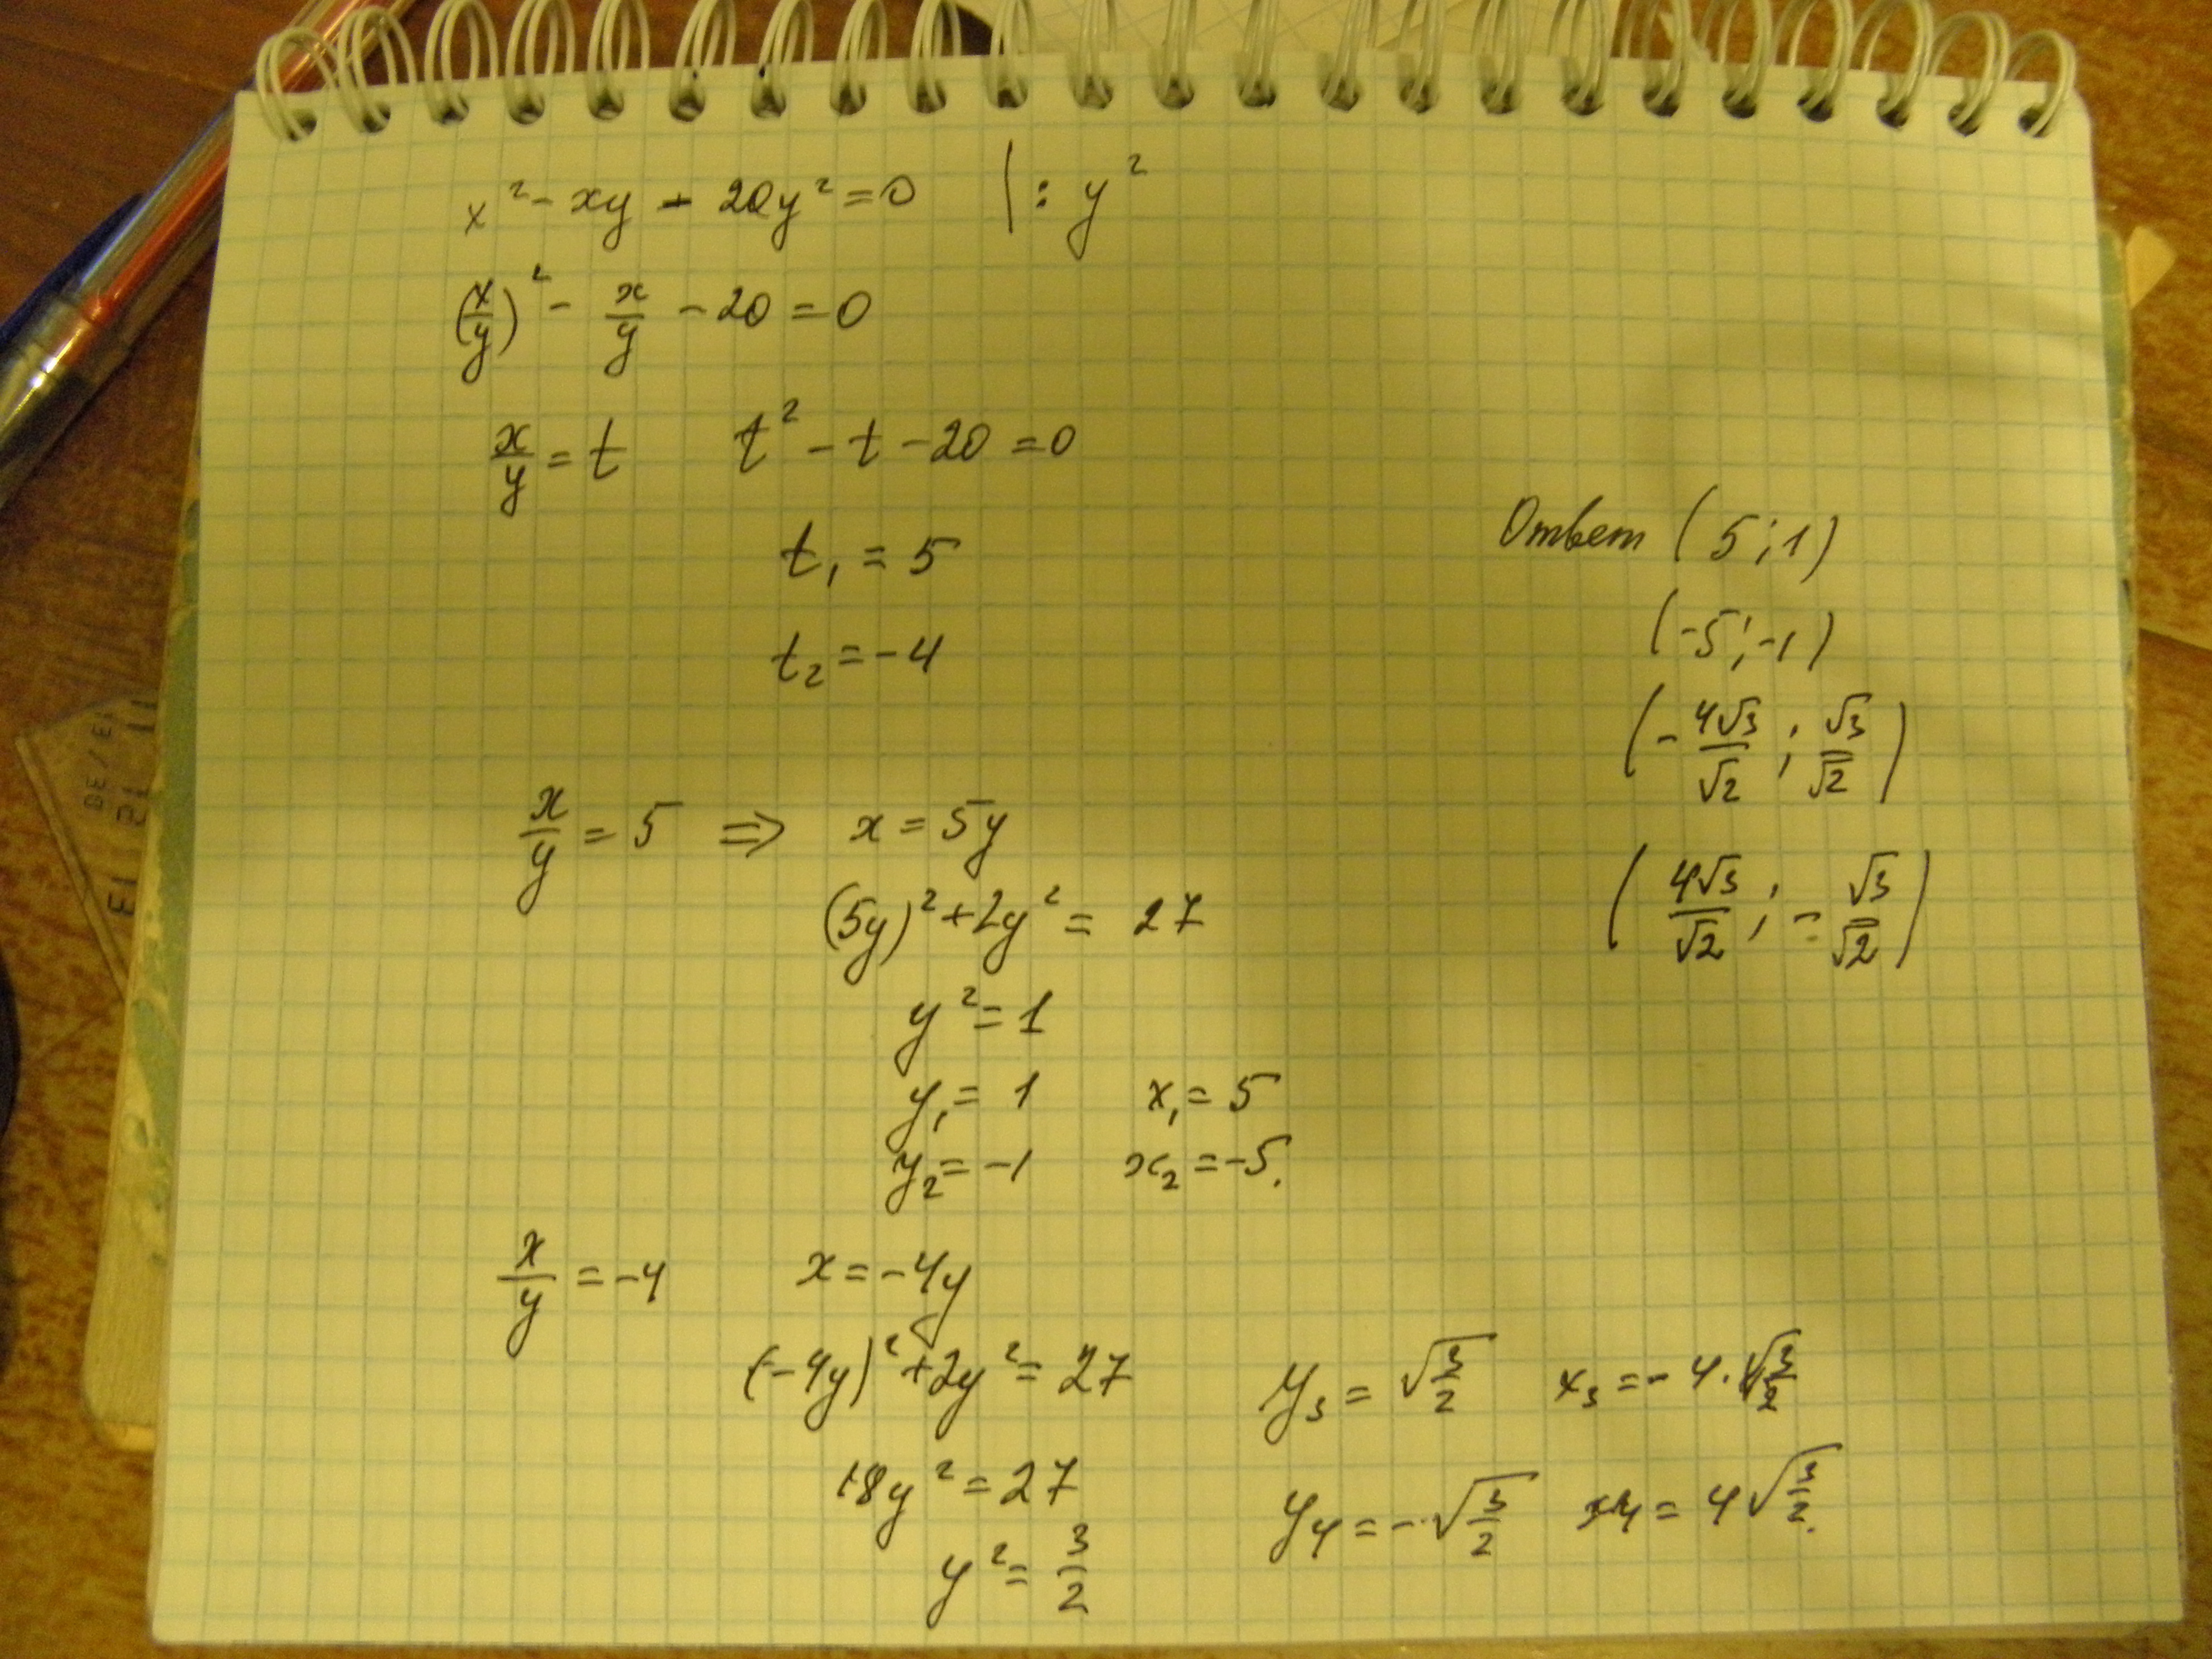 x² - xy - 20y² = 0 | : y²
(x/y)² - x/y - 20 = 0
x/y = t t² - t - 20 = 0
t₁ = 5
t₂ = -4
x/y = 5 ⇒ x = 5y
(5y)² + 2y² = 27
y² = 1
y₁ = 1 x₁ = 5
y₂ = -1 x₂ = -5.
x/y = -4 x = -4y
(-4y)² + 2y² = 27
18y² = 27
y² = 3/2
y₃ = √(3/2) x₃ = -4·√(3/2)
y₄ = -√(3/2) x₄ = 4√(3/2).
Ответ (5; 1)
(-5; -1)
(-4√3/√2 ; √3/√2)
(4√3/√2 ; -√3/√2)